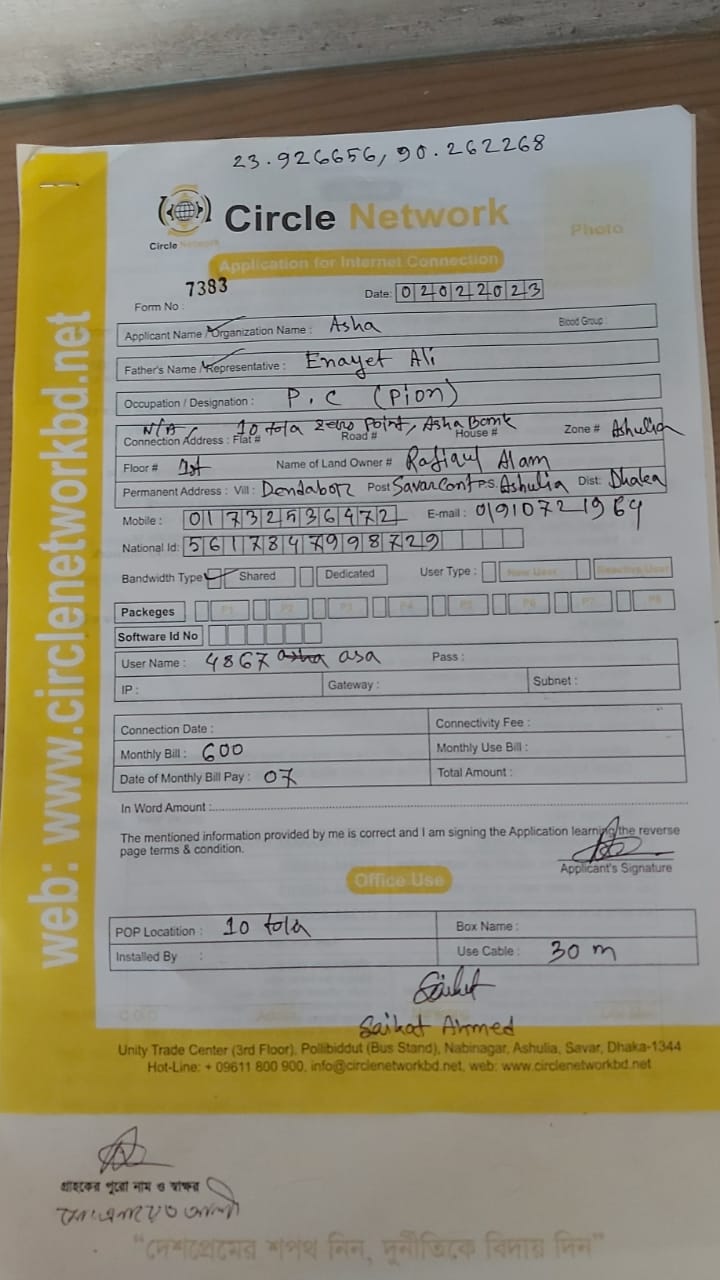 23.926656, 90.262268
Circle Network
Circle Network
Photo
Application for Internet Connection
Form No : 7383
Date: 02022023
Applicant Name / Organization Name : Asha
Blood Group :
Father's Name / Representative : Enayet Ali
Occupation / Designation : P.C (Pion)
N/A 10 tola zero point, Asha Bank
Connection Address : Flat # Road # House # Zone # Ashulia
Floor # 1st Name of Land Owner # Rafiqul Alam
Permanent Address : Vill : Dendabor Post Savar Cant P.S. Ashulia Dist: Dhaka
Mobile : 01732536472 E-mail : 01910721964
National Id: 5617847998729
Bandwidth Type Shared Dedicated User Type : New User Reactive User
Packeges P1 P2 P3 P4 P5 P6 P7 P8
Software Id No
User Name : 4867 asha asa Pass :
IP : Gateway : Subnet :
Connection Date : Connectivity Fee :
Monthly Bill : 600 Monthly Use Bill :
Date of Monthly Bill Pay : 07 Total Amount :
In Word Amount :
The mentioned information provided by me is correct and I am signing the Application learning the reverse
page terms & condition.
Applicant's Signature
Office Use
POP Locatition : 10 tola Box Name :
Installed By : Use Cable : 30 m
Saikat
Saikat Ahmed
Unity Trade Center (3rd Floor), Pollibiddut (Bus Stand), Nabinagar, Ashulia, Savar, Dhaka-1344
Hot-Line: + 09611 800 900, info@circlenetworkbd.net, web: www.circlenetworkbd.net
web: www.circlenetworkbd.net
গ্রাহকের পুরো নাম ও স্বাক্ষর
মোঃ এনায়েত আলী
“দেশপ্রেমের শপথ নিন, দুর্নীতিকে বিদায় দিন”